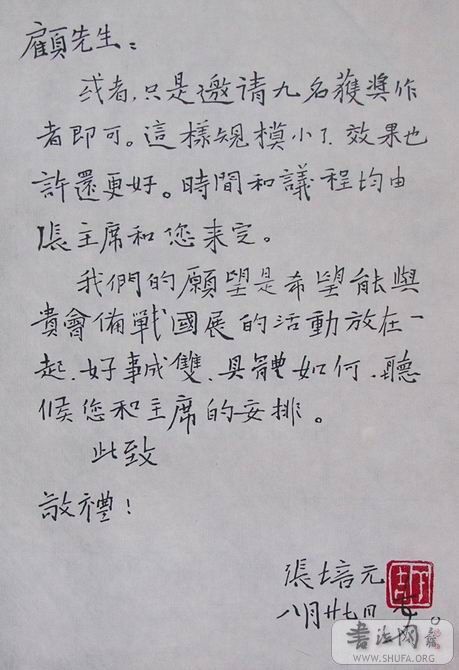 顧先生:
或者,只是邀请九名獲奬作
者即可。這樣規模小了.效果也
許還更好。時間和議程均由
張主席和您来定。
我們的願望是希望能與
貴會備戰國展的活動放在一
起.好事成雙.具體如何.聽
候您和主席的安排。
此致
敬禮!
張培元
八月廿七日
書法网
WWW.SHUFA.ORG